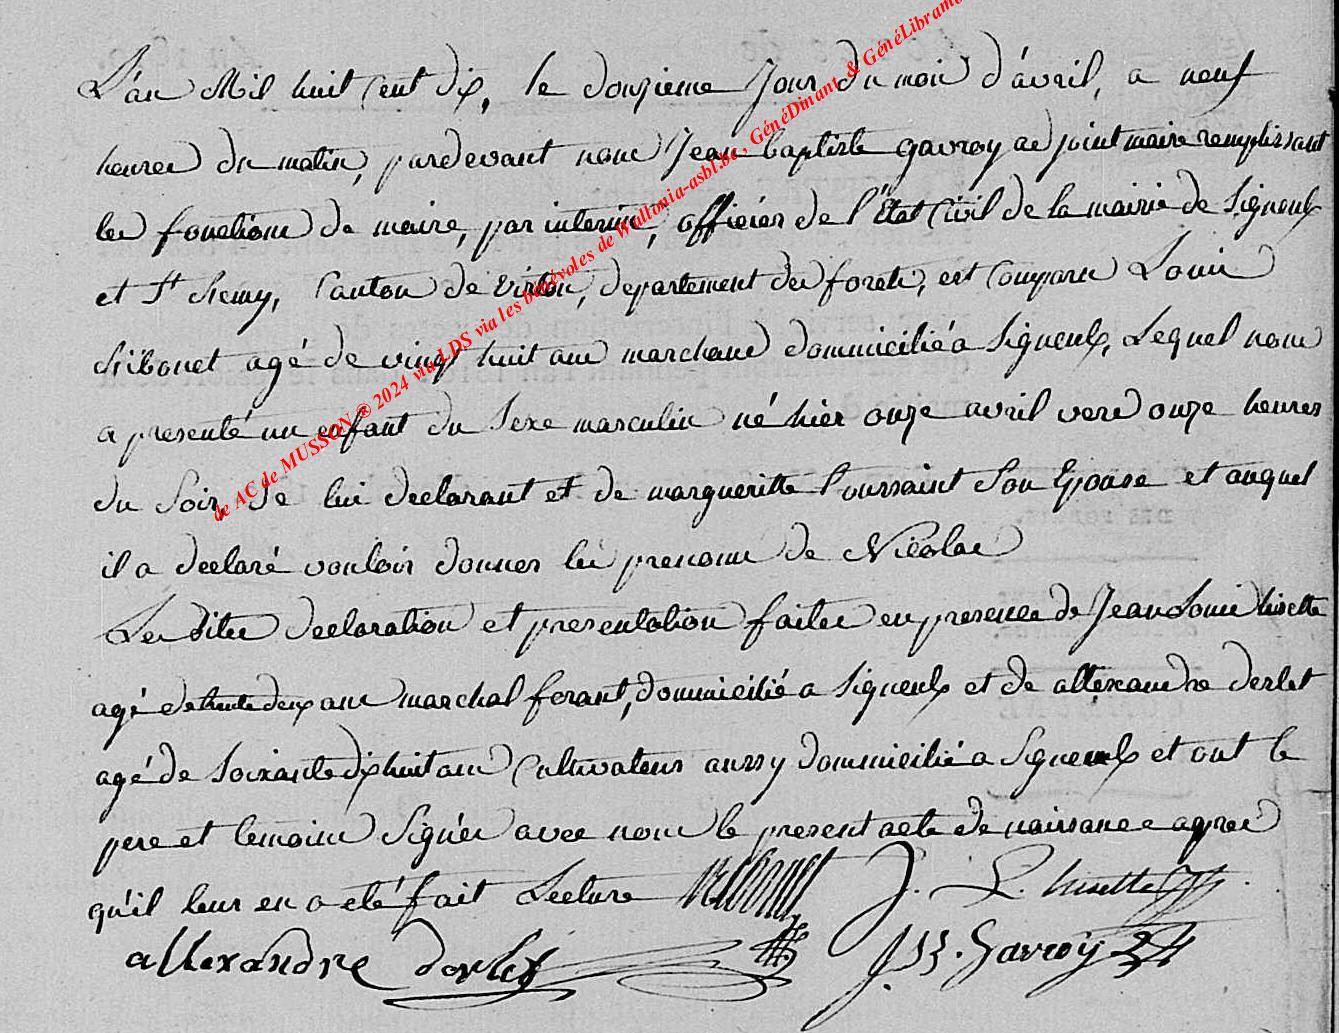 L'an Mil huit Cent dix, le douzieme Jour du mois d'avril, a neuf
heures du matin, pardevant nous Jean baptiste gavroy adjoint maire remplissant
les fonctions de maire, par interim, officier de l'État Civil de la mairie de Signeulx
et St Remy, Canton de Virton, departement des forets, est Comparu Louis
Ribonet agé de vingt huit ans marchand domicilié a Signeulx, Lequel nous
a presenté un enfant du Sexe masculin né hier onze avril vers onze heures
du Soir, de lui declarant et de margueritte Toussaint Son Epouse et auquel
il a declaré vouloir donner les prenoms de Nicolas
Les dites declaration et presentation faites en presence de Jean Louis
agé de trente deux ans marchal ferant, domicilié a Signeulx et de allexandre derlet
agé de Soixante dix huit ans Cultivateur aussy domicilié a Signeulx et ont le
pere et temoins Signés avec nous le present acte de naissance apres
qu'il leur en a eté fait Lecture Ribonet J. L.
allexandre derlet J B. Gavroy
de AC de MUSSON ® 2024 via LDS via les bénévoles de Wallonia-asbl.be, GénéDinant & GénéLibramo